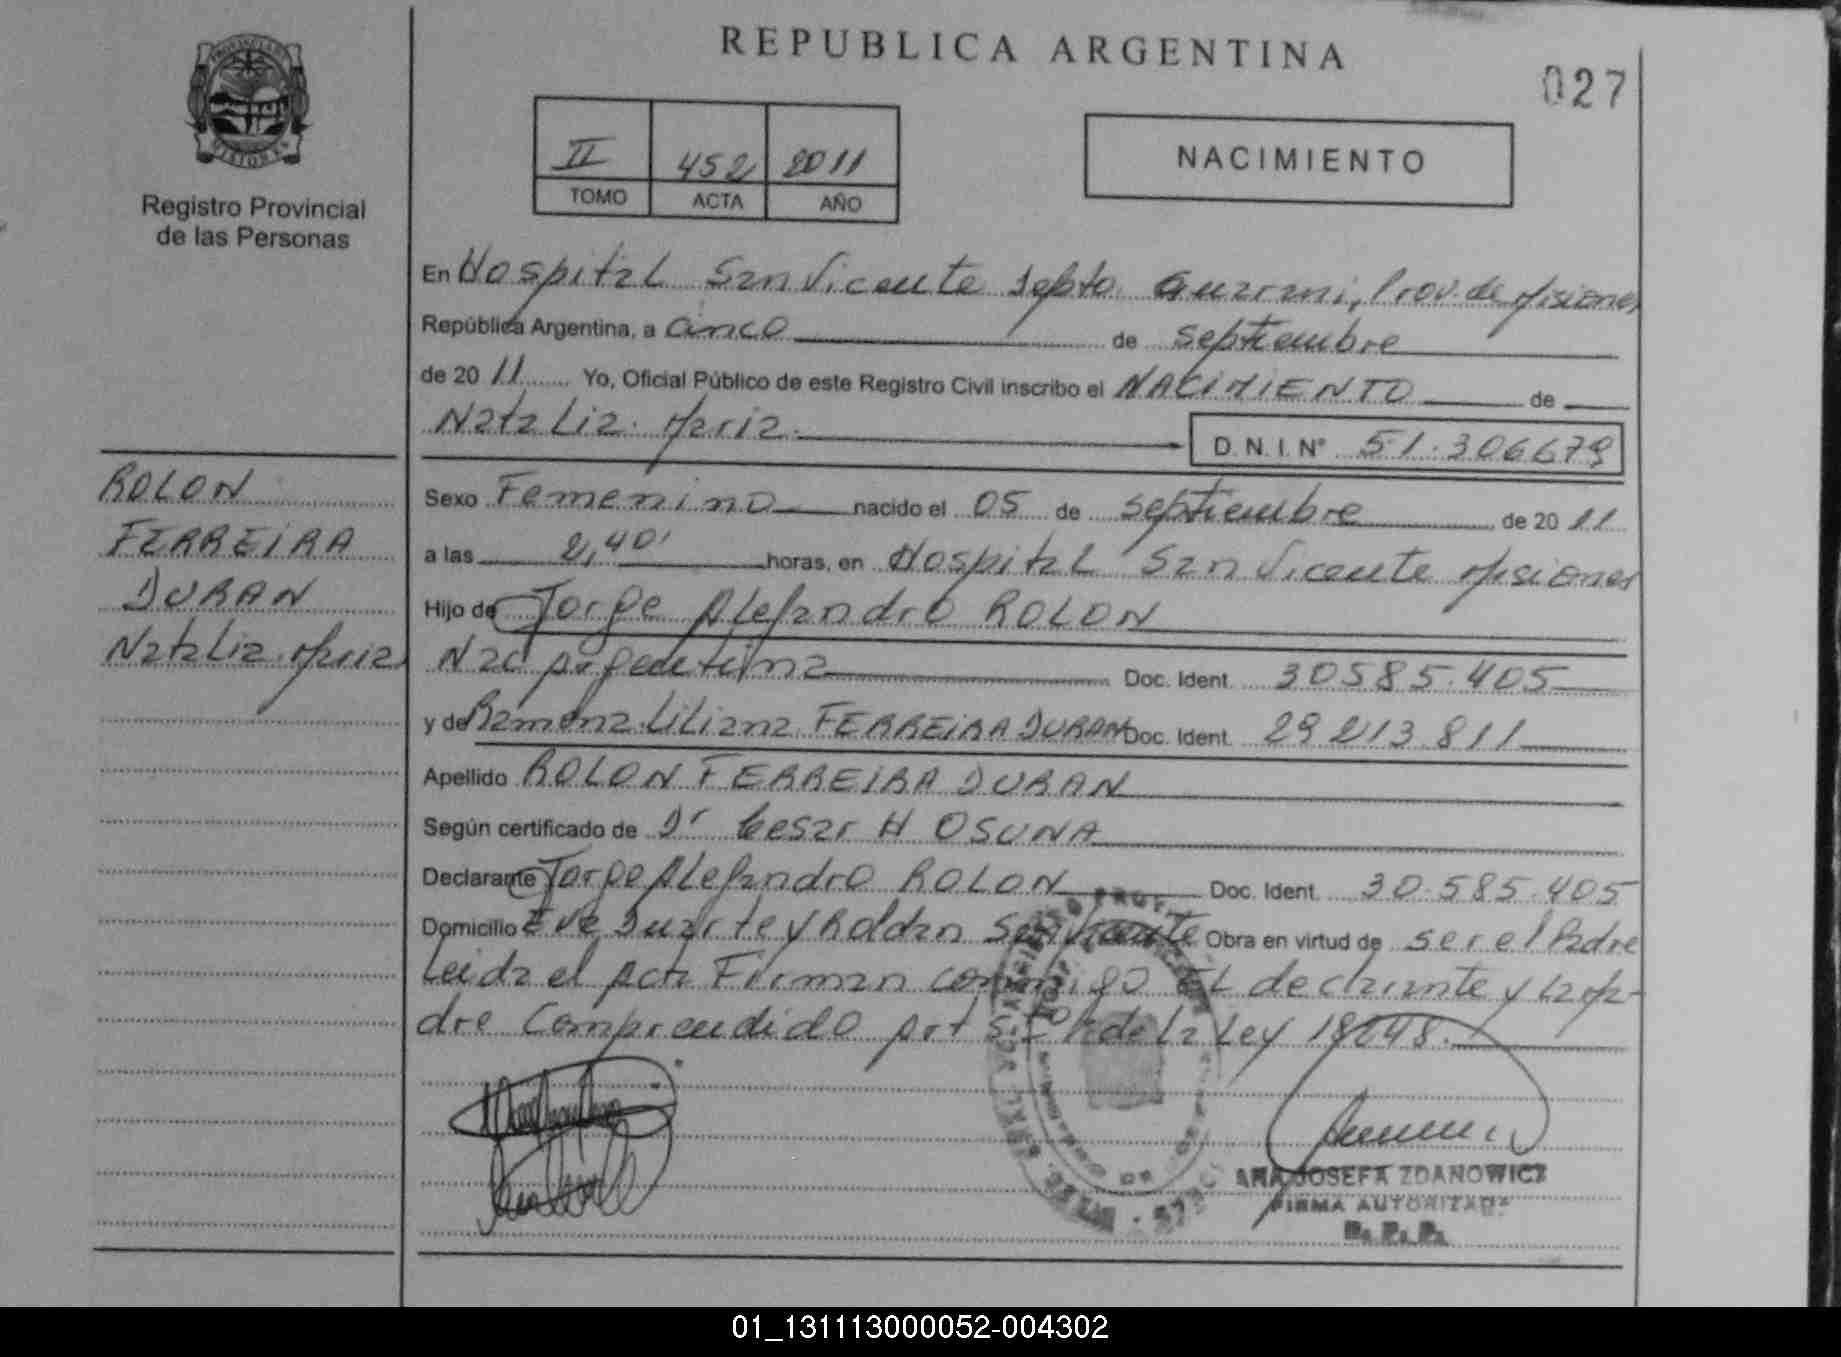 REPUBLICA ARGENTINA
027
PROVINCIA DE
MISIONES
Registro Provincial
de las Personas
II 452 2011
TOMO ACTA AÑO
NACIMIENTO
En Hospital San Vicente Depto. Guarani, Prov. de Misiones
República Argentina, a cinco de septiembre
de 2011 Yo, Oficial Público de este Registro Civil inscribo el NACIMIENTO de
Natalia Maria D. N. I. N° 51.306679
ROLON
FERREIRA
DURAN
Natalia Maria
Sexo Femenino nacido el 05 de septiembre de 2011
a las 2,40' horas, en Hospital San Vicente Misiones
Hijo de Jorge Alejandro ROLON
Nac Argentina Doc. Ident. 30585.405
y de Ramona Liliana FERREIRA DURAN Doc. Ident. 29 213.811
Apellido ROLON FERREIRA DURAN
Según certificado de Dr Cesar H OSUNA
Declarante Jorge Alejandro ROLON Doc. Ident. 30.585.405
Domicilio Eva Duarte y Roldan San Vicente Obra en virtud de ser el Padre
Leida el acta Firman conmigo EL declarante y La Ma-
dre Comprendido Art 5 de La Ley 18248.
ANA JOSEFA ZDANOWICZ
FIRMA AUTORIZADA
R. P. P.
01_131113000052-004302